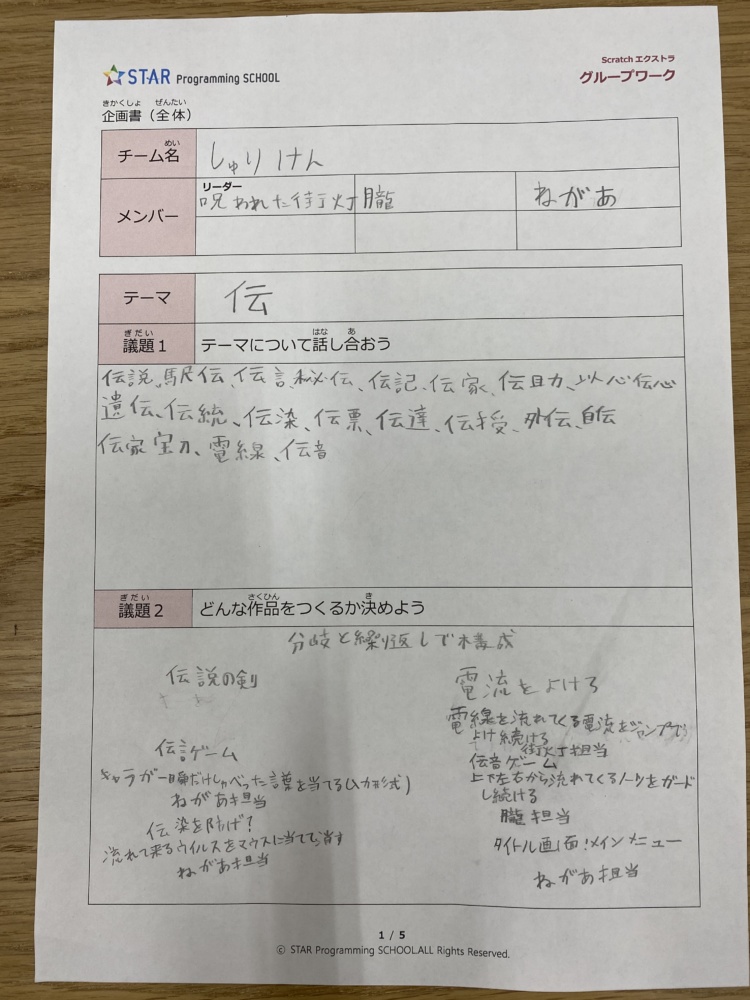 STAR Programming SCHOOL
Scratch エクストラ
グループワーク
きかくしょ ぜんたい
企画書（全体）
めい
チーム名
しゅりけん
メンバー
リーダー
呪われた街灯
朧
ねがあ
テーマ
伝
ぎだい
議題1
はな あ
テーマについて話し合おう
伝説、駅伝、伝言、秘伝、伝記、伝家、伝目力、以心伝心
遺伝、伝統、伝染、伝票、伝達、伝授、外伝、自伝
伝家宝刀、電線、伝音
ぎだい
議題2
さくひん き
どんな作品をつくるか決めよう
分岐と繰り返しで構成
伝説の剣
伝言ゲーム
キャラが一瞬だけしゃべった言葉を当てる(入力形式)
ねがあ担当
伝染を防げ?
流れて来るウイルスをマウスに当てて消す
ねがあ担当
電流をよけろ
電線を流れてくる電流をジャンプで
よけ続けろ
街灯担当
伝音ゲーム
上下左右から流れてくるノーツをガード
し続ける
朧担当
タイトル画面!メインメニュー
ねがあ担当
1 / 5
© STAR Programming SCHOOL.ALL Rights Reserved.